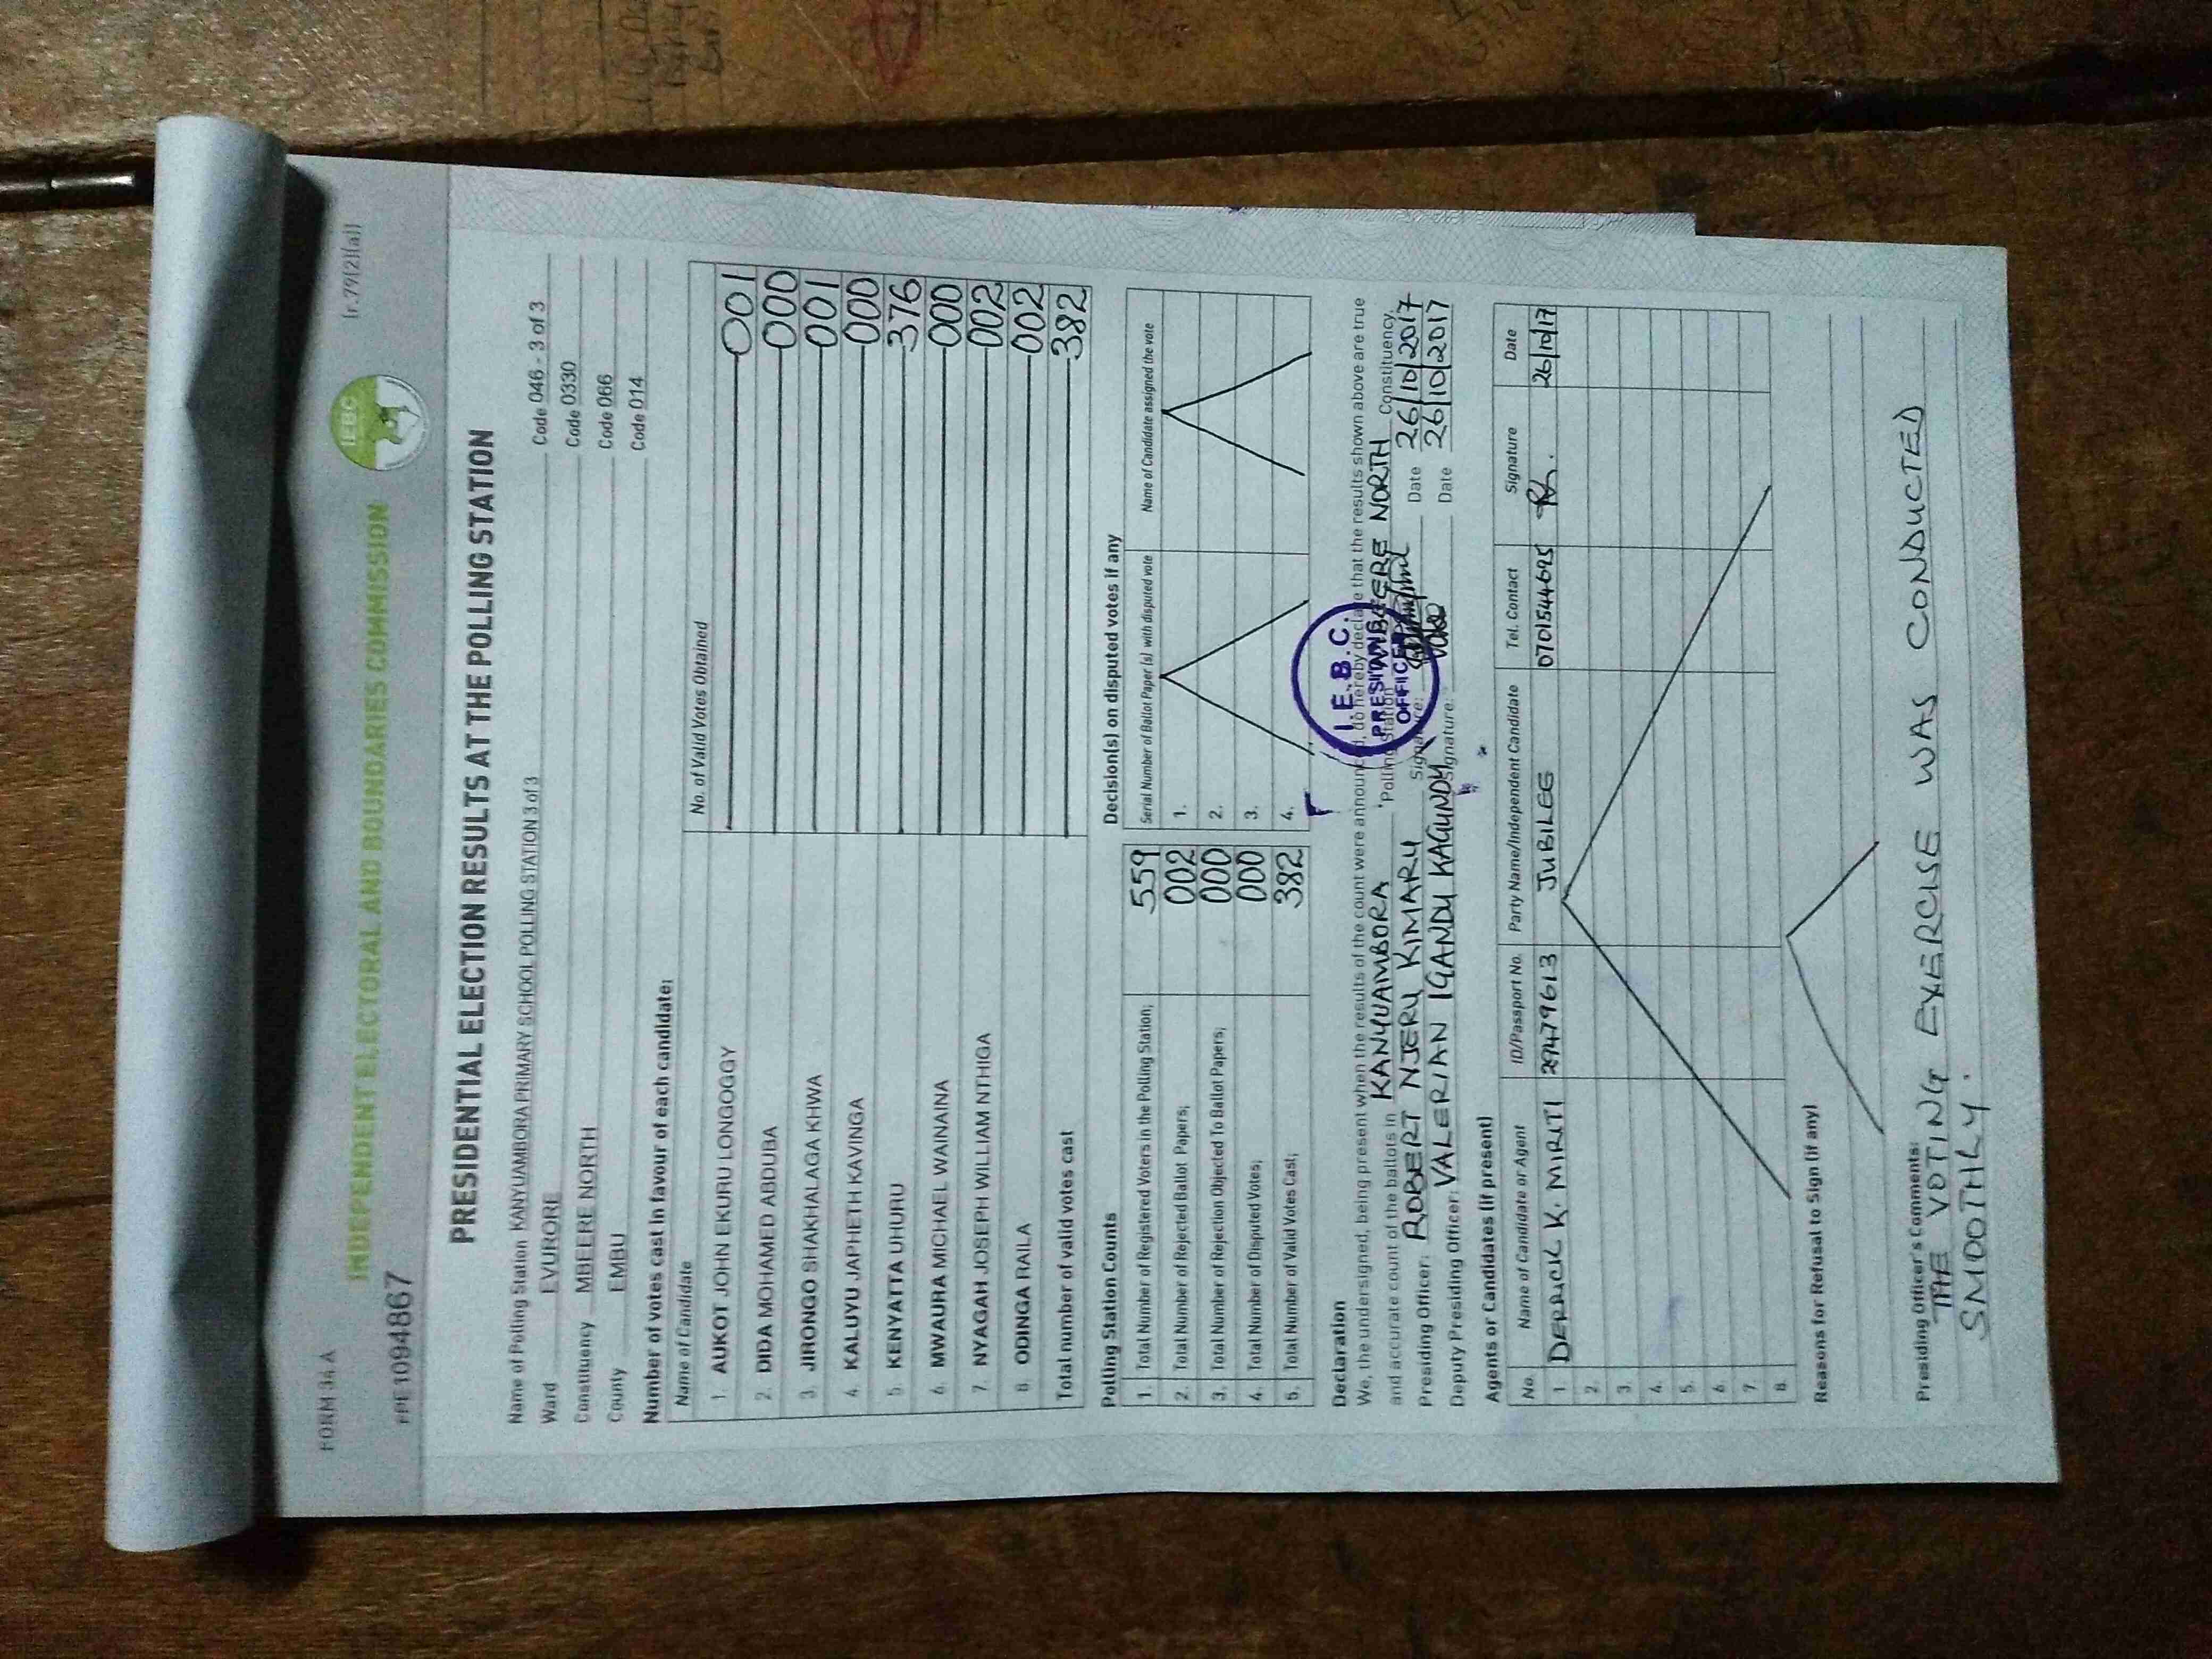 FORM 34 A
[r.79(2)(a)]
INDEPENDENT ELECTORAL AND BOUNDARIES COMMISSION
IEBC
PPE1094867
PRESIDENTIAL ELECTION RESULTS AT THE POLLING STATION
Name of Polling Station KANYUAMBORA PRIMARY SCHOOL POLLING STATION 3 of 3 Code 046 - 3 of 3
Ward EVURORE Code 0330
Constituency MBEERE NORTH Code 066
County EMBU Code 014
Number of votes cast in favour of each candidate;
Name of Candidate No. of Valid Votes Obtained
1. AUKOT JOHN EKURU LONGOGGY 001
2. DIDA MOHAMED ABDUBA 000
3. JIRONGO SHAKHALAGA KHWA 001
4. KALUYU JAPHETH KAVINGA 000
5. KENYATTA UHURU 376
6. MWAURA MICHAEL WAINAINA 000
7. NYAGAH JOSEPH WILLIAM NTHIGA 002
8. ODINGA RAILA 002
Total number of valid votes cast 382
Polling Station Counts
1. Total Number of Registered Voters in the Polling Station; 559
2. Total Number of Rejected Ballot Papers; 002
3. Total Number of Rejection Objected To Ballot Papers; 000
4. Total Number of Disputed Votes; 000
5. Total Number of Valid Votes Cast; 382
Decision(s) on disputed votes if any
Serial Number of Ballot Paper (s) with disputed vote Name of Candidate assigned the vote
1.
2.
3.
4.
Declaration
We, the undersigned, being present when the results of the count were announced, do hereby declare that the results shown above are true
and accurate count of the ballots in KANYUAMBORA Polling Station MBEERE NORTH Constituency.
Presiding Officer: ROBERT NJERU KIMARU Signature: Date 26/10/2017
Deputy Presiding Officer: VALERIAN IGANDU KAGUNDU Signature: Date 26/10/2017
I.E.B.C.
PRESIDING
OFFICER
Agents or Candidates (if present)
No. Name of Candidate or Agent ID/Passport No. Party Name/Independent Candidate Tel. Contact Signature Date
1. DERRICK K. MIRITI 29479613 JUBILEE 0701544695 26/10/17
2.
3.
4.
5.
6.
7.
8.
Reasons for Refusal to Sign (if any)
Presiding Officer's Comments:
THE VOTING EXERCISE WAS CONDUCTED
SMOOTHLY.